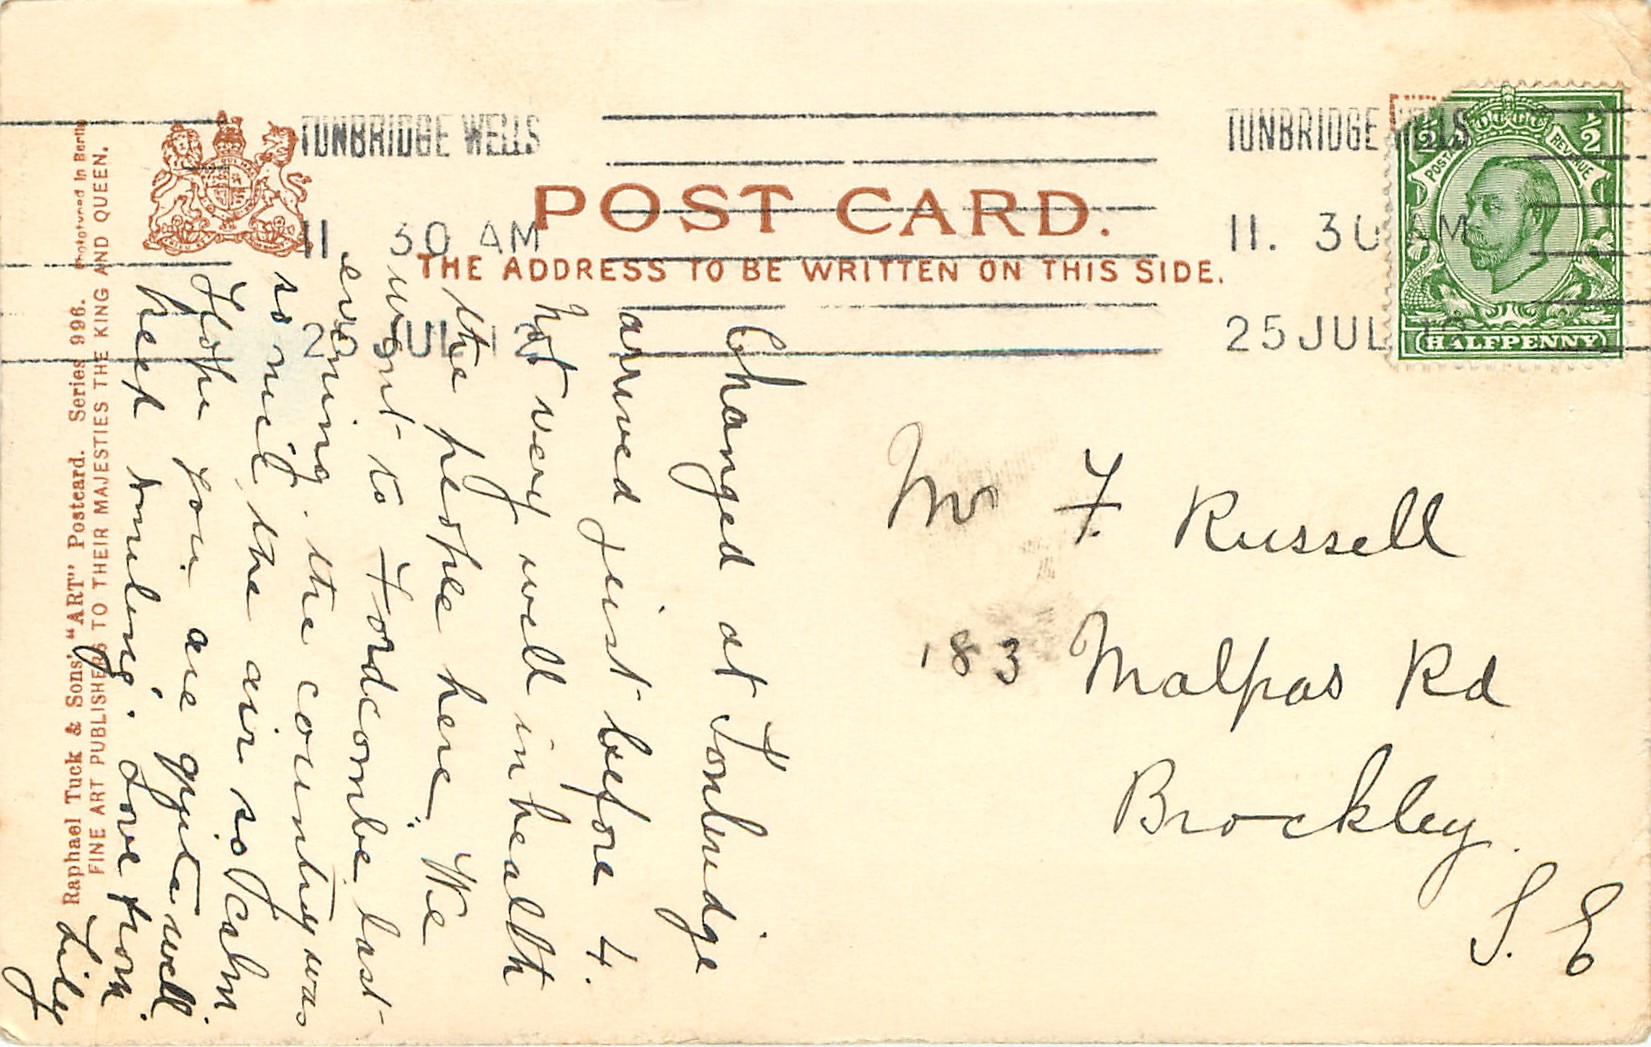 TUNBRIDGE WELLS
11. 30 AM
25 JUL 12
TUNBRIDGE WELLS
11. 30 AM
25 JUL 12
POST CARD.
THE ADDRESS TO BE WRITTEN ON THIS SIDE.
1/2 1/2
POSTAGE REVENUE
HALFPENNY
Raphael Tuck & Sons' "ART" Postcard. Series 996. Phototyped in Berlin
FINE ART PUBLISHERS TO THEIR MAJESTIES THE KING AND QUEEN.
Changed at Tonbridge
arrived just before 4.
Not very well in health
the people here. We
went to Fordcombe last
evening. the country was
so nice the air so calm
Hope you are quite well.
Love from
Lily
Mr F. Russell
183 Malpas Rd
Brockley.
S. E